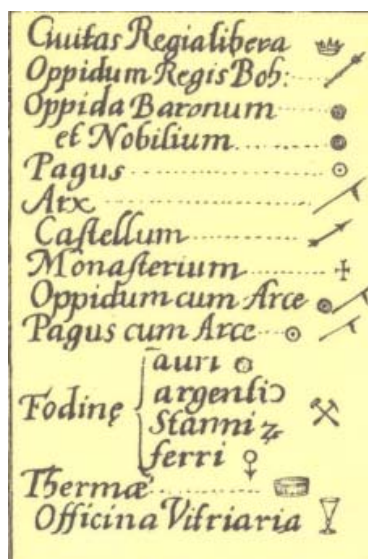 Ciuitas Regialibera
Oppidum Regis Boh:
Oppida Baronum
et Nobilium
Pagus
Arx
Caſtellum
Monaſterium
Oppidum cum Arce
Pagus cum Arce
auri
argenti
Fodinę
Stanni
ferri
Thermæ
Officina Vitriaria